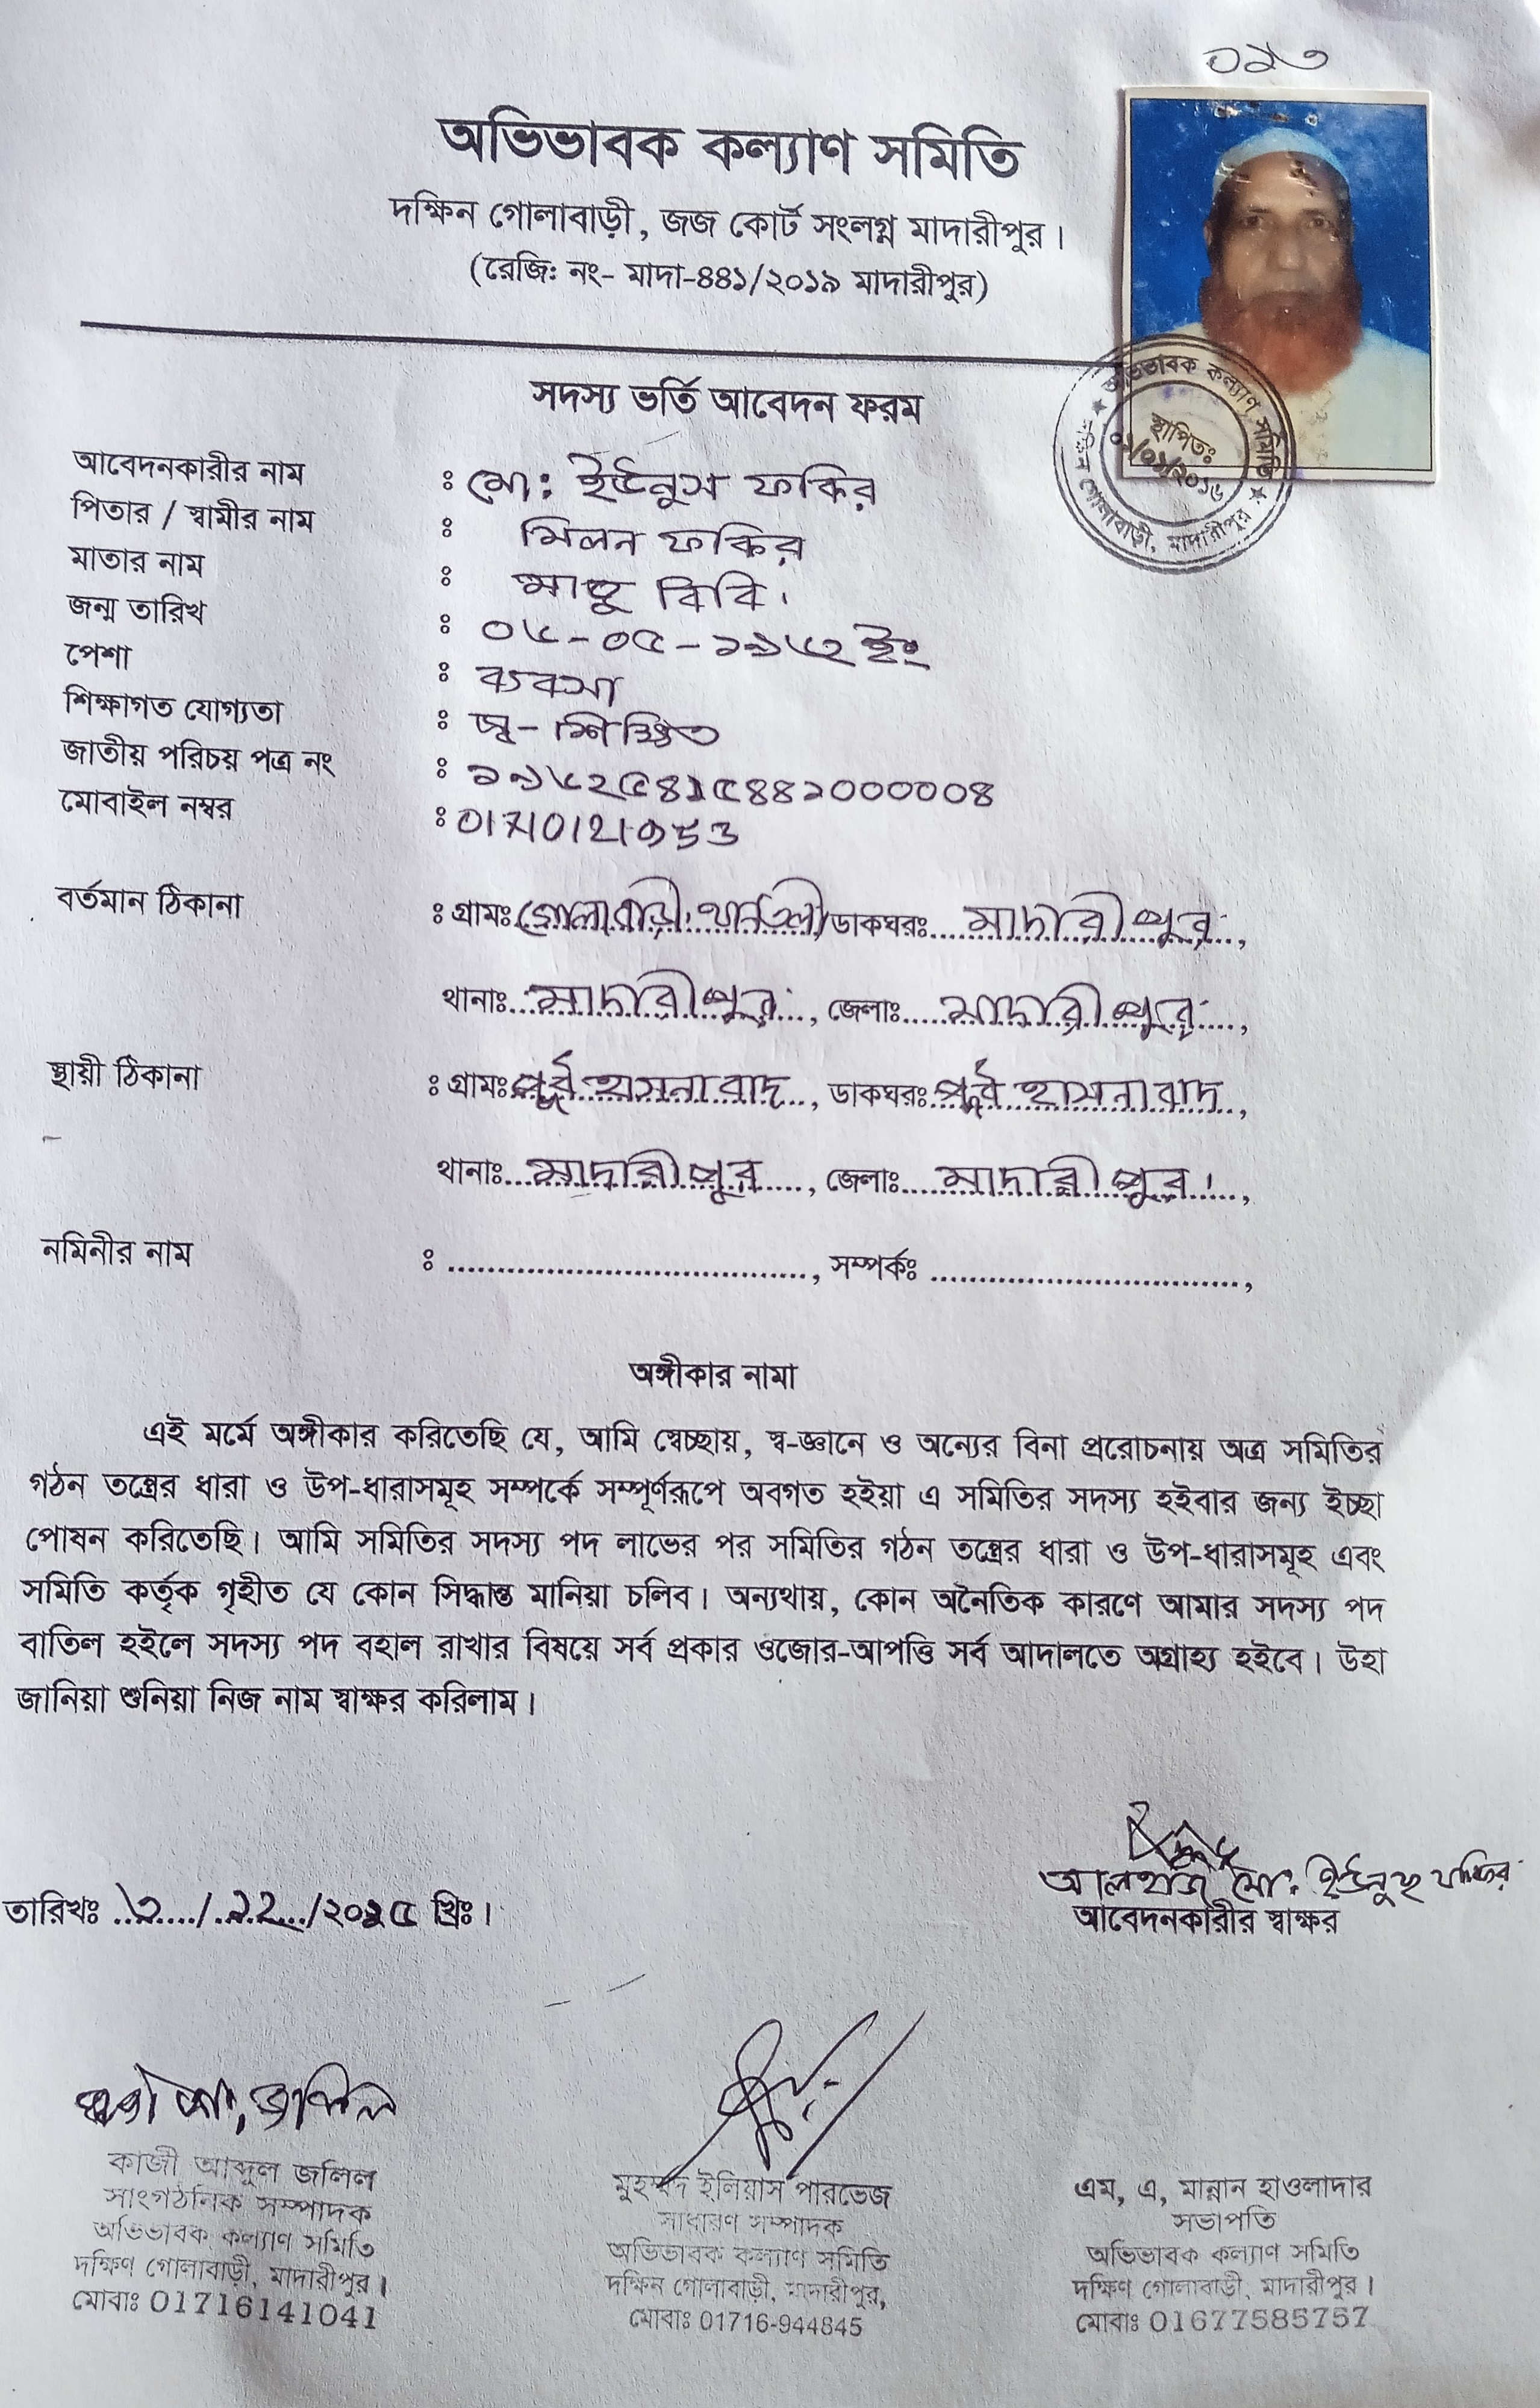 ০১৩
অভিভাবক কল্যাণ সমিতি
দক্ষিন গোলাবাড়ী, জজ কোর্ট সংলগ্ন মাদারীপুর।
(রেজি: নং- মাদা-৪৪১/২০১৯ মাদারীপুর)
অভিভাবক কল্যাণ সমিতি
স্থাপিতঃ
০১/০১/২০১৬
দক্ষিন গোলাবাড়ী, মাদারীপুর
সদস্য ভর্তি আবেদন ফরম
আবেদনকারীর নাম : মো: ইউনুস ফকির
পিতার / স্বামীর নাম : মিলন ফকির
মাতার নাম : বিবি।
জন্ম তারিখ : ০৬-০৫-১৯৬২ ইং
পেশা : ব্যবসা
শিক্ষাগত যোগ্যতা : স্ব-শিক্ষিত
জাতীয় পরিচয় পত্র নং : ১৯৬২৫৪১৫৪৪১০০০০০৪
মোবাইল নম্বর :
বর্তমান ঠিকানা : গ্রামঃ গোলাবাড়ী, ডাকঘরঃ মাদারীপুর,
থানাঃ মাদারীপুর, জেলাঃ মাদারীপুর,
স্থায়ী ঠিকানা : গ্রামঃ পূর্ব হাসনাবাদ, ডাকঘরঃ পূর্ব হাসনাবাদ,
থানাঃ মাদারীপুর, জেলাঃ মাদারীপুর।,
নমিনীর নাম : ...................................., সম্পর্কঃ ................................,
অঙ্গীকার নামা
এই মর্মে অঙ্গীকার করিতেছি যে, আমি স্বেচ্ছায়, স্ব-জ্ঞানে ও অন্যের বিনা প্ররোচনায় অত্র সমিতির
গঠন তন্ত্রের ধারা ও উপ-ধারাসমূহ সম্পর্কে সম্পূর্ণরূপে অবগত হইয়া এ সমিতির সদস্য হইবার জন্য ইচ্ছা
পোষন করিতেছি। আমি সমিতির সদস্য পদ লাভের পর সমিতির গঠন তন্ত্রের ধারা ও উপ-ধারাসমূহ এবং
সমিতি কর্তৃক গৃহীত যে কোন সিদ্ধান্ত মানিয়া চলিব। অন্যথায়, কোন অনৈতিক কারণে আমার সদস্য পদ
বাতিল হইলে সদস্য পদ বহাল রাখার বিষয়ে সর্ব প্রকার ওজোর-আপত্তি সর্ব আদালতে অগ্রাহ্য হইবে। উহা
জানিয়া শুনিয়া নিজ নাম স্বাক্ষর করিলাম।
আলহাজ মো: ইউনুছ ফকির
তারিখঃ ৬/১২/২০২৫ খ্রিঃ।
আবেদনকারীর স্বাক্ষর
কাজী আব্দুল জলিল
সাংগঠনিক সম্পাদক
অভিভাবক কল্যাণ সমিতি
দক্ষিণ গোলাবাড়ী, মাদারীপুর।
মোবাঃ 01716141041
মুহম্মদ ইলিয়াস পারভেজ
সাধারণ সম্পাদক
অভিভাবক কল্যাণ সমিতি
দক্ষিন গোলাবাড়ী, মাদারীপুর,
মোবাঃ 01716-944845
এম, এ, মান্নান হাওলাদার
সভাপতি
অভিভাবক কল্যাণ সমিতি
দক্ষিণ গোলাবাড়ী, মাদারীপুর।
মোবাঃ 01677585757